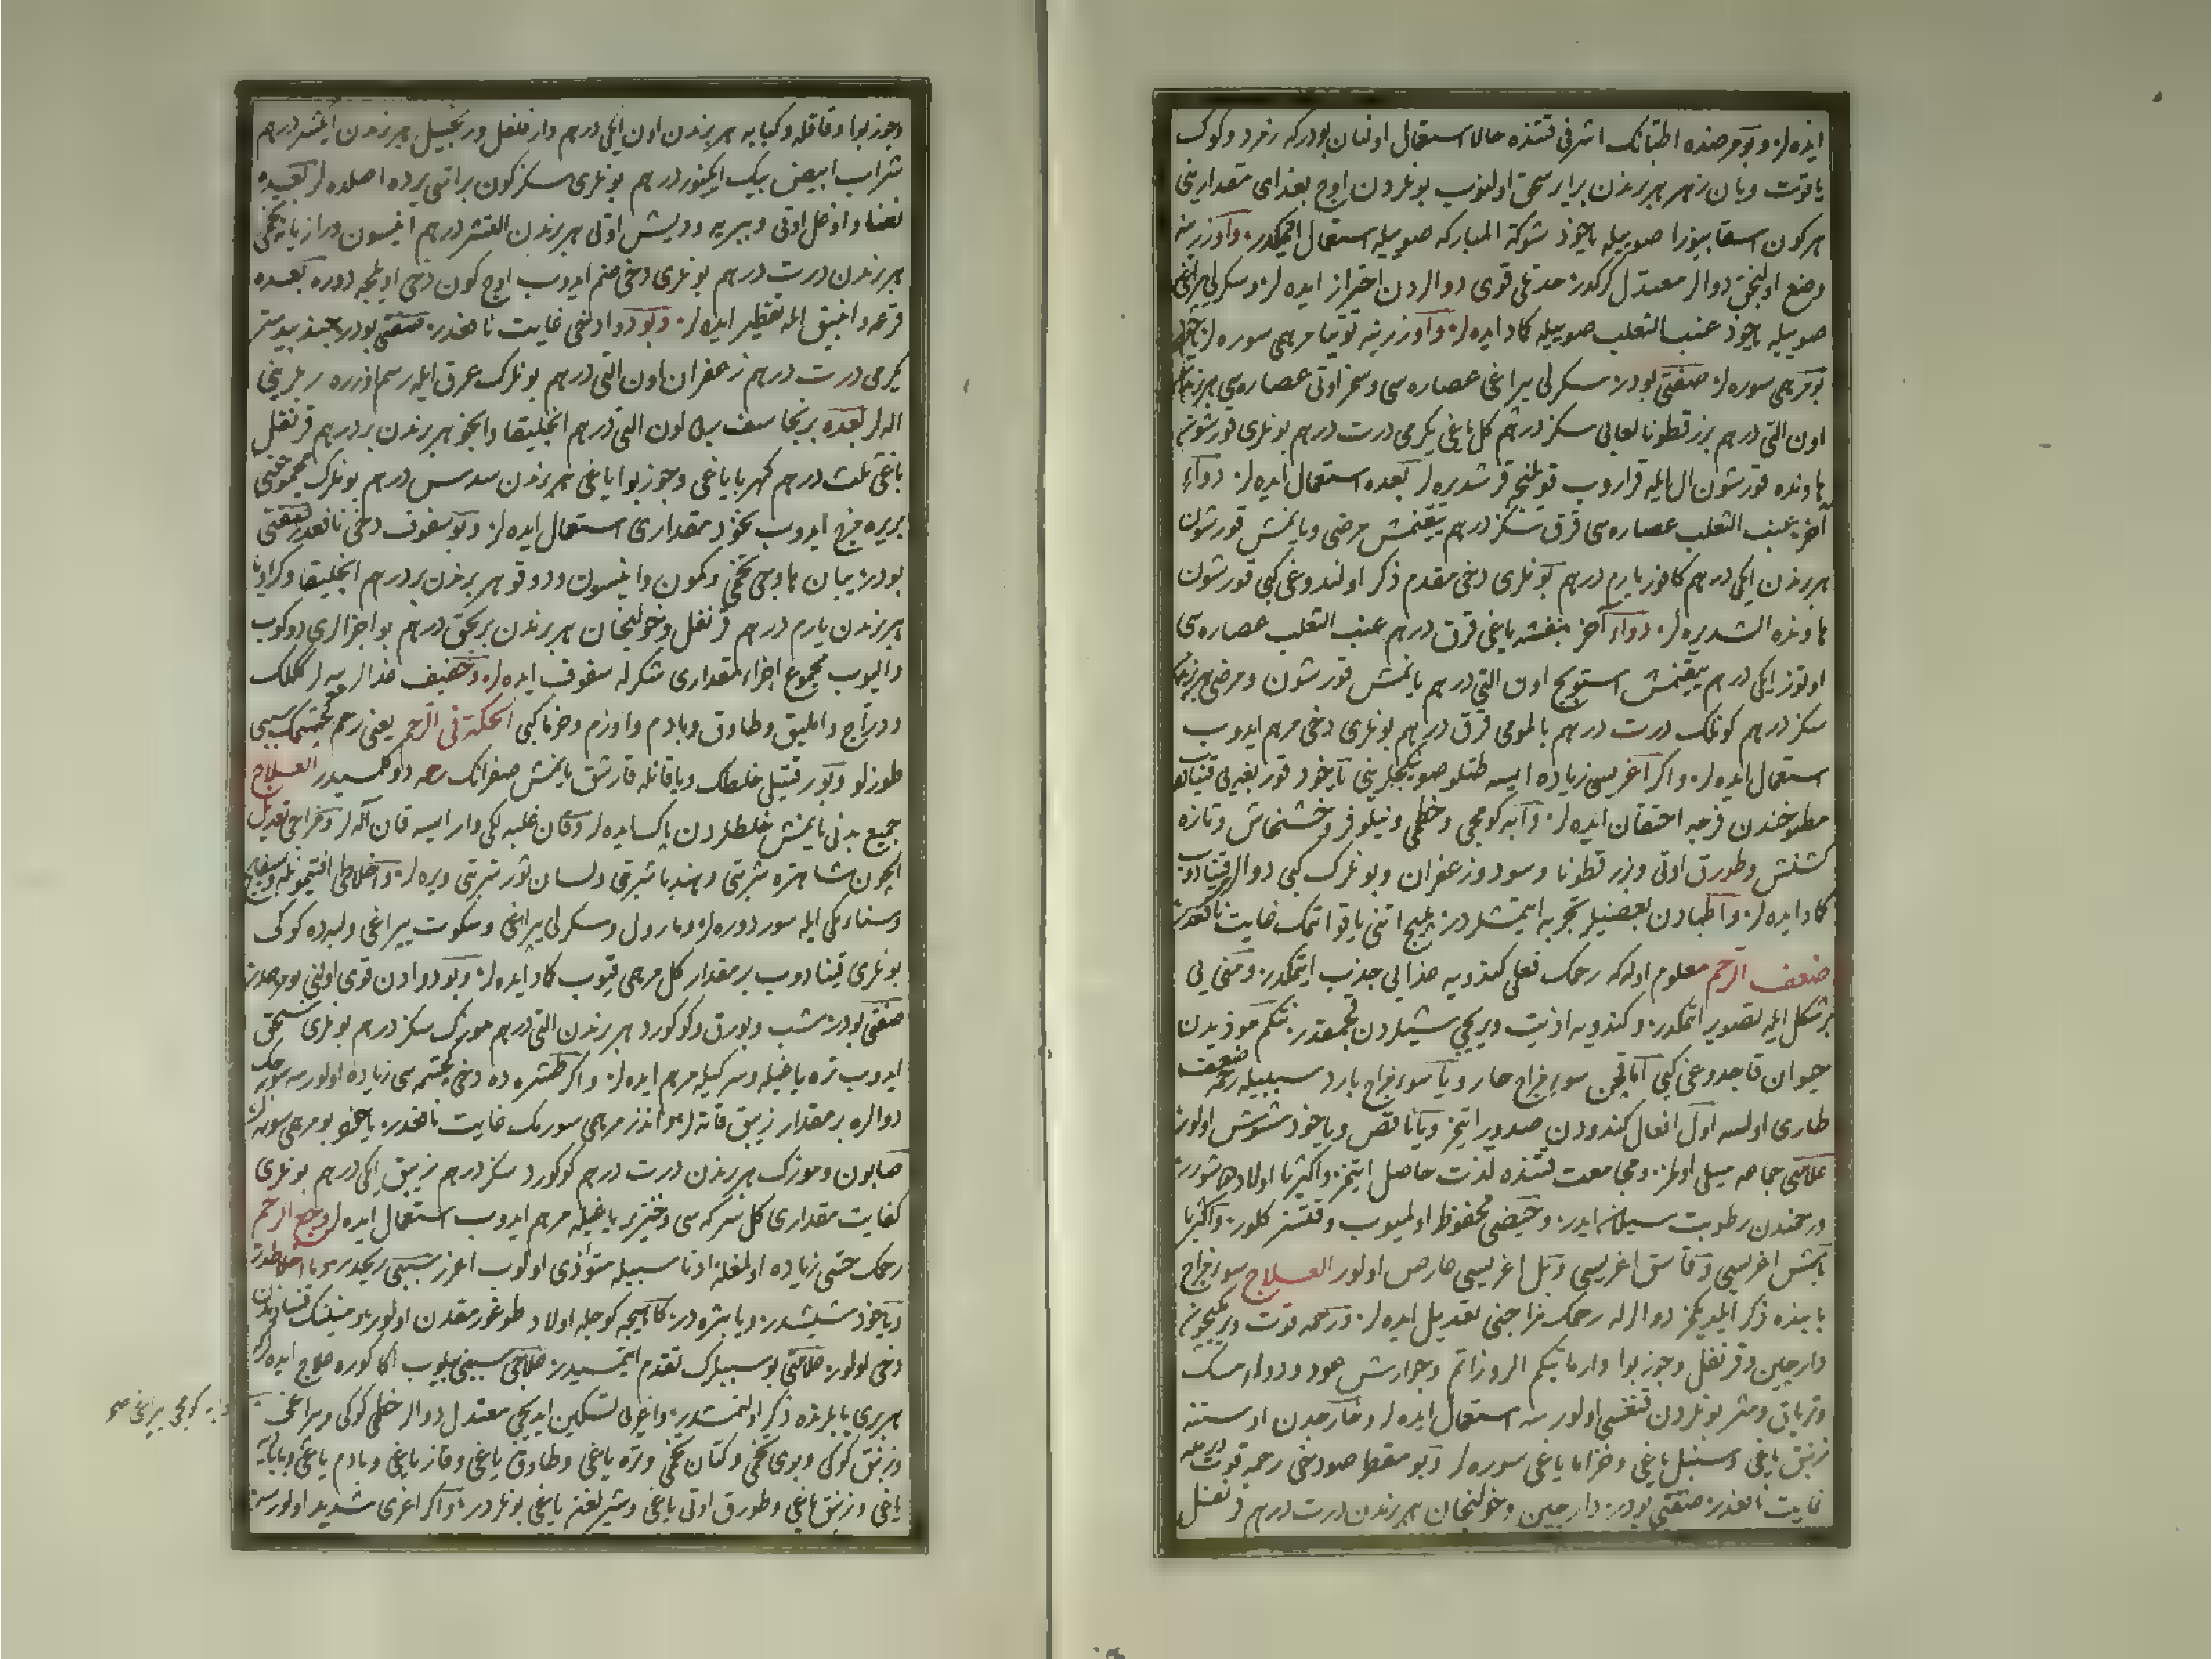 ایده لر و بو مرضده اطبانك اشرفی قتنده حالا استعمال اولنان بودركه زمرد و كوك
یاقوت و بان زهر هر برندن برابر سحق اولنوب بونلردن اوچ بغدای مقدارینی
هر كون اسقابیوزا صوییله یاخود شوكة المباركه صوییله استعمال اتمكدر و اوزرینه
وضع اولنجق دوالر معتدل كركدر حدتلی قوی دوالردن احتراز ایده لر و سكرلی یپراغی
صوییله یاخود عنب الثعلب صوییله كماد ایده لر و اوزرینه توتیا مرهمی سوره لر یاخود
بو مرهمی سوره لر صنعتی بودر سكرلی یپراغی عصاره سی و سمز اوتی عصاره سی هر برندن
اون التی درهم بزرقطونا لعابی سكز درهم كل یاغی یكرمی درت درهم بونلری قورشون
هاونده قورشون ال ایله قاروب قویلنجه قرشدیره لر بعده استعمال ایده لر دواء
آخر عنب الثعلب عصاره سی قرق سكز درهم ییقنمش مرضی و یانمش قورشون
هر برندن ایكی درهم كافور یارم درهم بونلری دخی مقدم ذكر اولندوغی كبی قورشون
هاونده الشدیره لر دواء آخر بنفشه یاغی قرق درهم عنب الثعلب عصاره سی
اوتوز ایكی درهم ییقنمش استوبج اون التی درهم یانمش قورشون و مرضی هر برندن
سكز درهم كونلك درت درهم بالمومی قرق درهم بونلری دخی مرهم ایدوب
استعمال ایده لر و اكر اغریسی زیاده ایسه طتلو صو ینكجلرینی یاخود قوربغه یی قینادوب
مطبوخندن فرجه احتقان ایده لر و ابه كومجی و خطمی و نیلوفر و خشخاش و تازه
كشنش و طورق اوتی و بزرقطونا و سود و زعفران و بونلرك كبی دوالر قینادوب
كماد ایده لر و اطبادن بعضیلر تجربه ایتمشلردر پلیج اتنی یاقو اتمك غایت نافعدر
ضعف الرحم معلوم اوله كه رحمك فعلی كندویه غذایی جذب ایتمكدر و منی یی
بر شكل ایله تصویر اتمكدر و كندویه اذیت ویریجی شیلردن قچمقدر نتكم موذیدن
حیوان قاجدوغی كبی اما قچن سوء مزاج حار و یا سوء مزاج بارد سببیله رحمه ضعف
طاری اولسه اول افعال كندودن صدور ایتمز و یا ناقص و یاخود مشوش اولور
علامتی جماعه میلی اولمز و مجامعت قتنده لذت حاصل ایتمز و اكثریا اولاد طاشورر
رحمندن رطوبت سیلان ایدر و حیضی محفوظ اولمیوب وقتسز كلور و اكثریا
باش اغریسی و قاسق اغریسی و بل اغریسی عارض اولور العلاج سوء مزاج
بابنده ذكر ایلدیكمز دوالرله رحمك مزاجنی تعدیل ایده لر و رحمه قوت ویریجیون
دارچین و قرنفل و جوز بوا و ارمانیكم الروزاتم و جوارش عود و دواء المسك
و تریاق و مثر بونلردن قنغیسی اولورسه استعمال ایده لر و خارجدن اوستنه
زنبق یاغی و سنبل یاغی و خزاما یاغی سوره لر و بو مقطر صو دخی رحمه قوت ویرمكله
غایت نافعدر صنعتی بودر دارچین و خولنجان هر برندن درت درهم قرنفل
وجوز بوا و قاقله و كبابه هر برندن اون ایكی درهم دار فلفل و زنجبیل هر برندن ایكیشر درهم
شراب ابیض بیك ایكیوز درهم بونلری سكز كون براقی یرده اصلده لر بعده
نعنا و اوغل اوتی و بیریه و دیش اوتی هر برندن التشر درهم انیسون و رازیانه تخمی
هر برندن درت درهم بونلری دخی ضم ایدوب اوچ كون دخی اویلجه دوره بعده
قرعه و انبیق ایله تقطیر ایده لر و بو دوا دخی غایت نافعدر صنعتی بودر جندبیدستر
یكرمی درت درهم زعفران اون التی درهم بونلرك عرق ایله رسم اوزره روحلرینی
اله لر بعده برنجاسف اون التی درهم انجلیقا و انجو هر برندن بر درهم قرنفل
یاغی ثلث درهم كهربا یاغی و جوز بوا یاغی هر برندن سدس درهم بونلرك مجموعنی
بریره مزج ایدوب نخود مقداری استعمال ایده لر و بو سفوف دخی نافعدر صنعتی
بودر یبان هاوجی تخمی و كمون و انیسون و دوقو هر برندن بر درهم انجلیقا و كراویا
هر برندن یارم درهم قرنفل و خولنجان هر برندن بر بچق درهم بو اجزالری دوكوب
و الیوب مجموع اجزاء مقداری شكرله سفوف ایده لر و خفیف غذالر یه لر ككلك
و دراج و ابلیق و طاوق و بادم و اوزم و خرما كبی الحكة فی الرحم یعنی رحم كجتمك سببی
طوزلو و بورقیتلی خلطك و یا قانله قارشق یانمش صفرانك رحمه دوكلمسیدر العلاج
جمیع بدنی یانمش خلطلردن پاك ایده لر و قان غلبه لكی وار ایسه قان اله لر و مزاجی تعدیل
ایچون شاهتره شربتی و هندبا شربتی و لسان ثور شربتی ویره لر و اخلاطی افتیمونله و بسفایج
و سناء مكی ایله سوردوره لر و مارول و سكرلی یپراغی و سكوت یپراغی و لبده كوكی
بونلری قینادوب بر مقدار كل مرهمی قیوب كماد ایده لر و بو دوادن قوی اولنی بو مرهمدر
صنعتی بودر شب و بورق و كوكورد هر برندن التی درهم مورك سكز درهم بونلری سحق
ایدوب تره یاغیله و سركیله مرهم ایده لر و اكر طشره ده دخی كجشمه سی زیاده اولورسه
دوالره بر مقدار زیبق قاته لر و اندز مرهمی سورمك غایت نافعدر یاخود بو مرهمی سوره لر
صابون و مورك هر برندن درت درهم كوكورد سكز درهم زیبق ایكی درهم بونلری
كفایت مقداری كل سركه سی و خنزیر یاغیله مرهم ایدوب استعمال ایده لر وجع الرحم
رحمك حسی زیاده اولمغله ادنا سببیله متؤذی اولوب اغرر سببی ریحدر و یا اخلاطدر
و یاخود شیشدر و یا بثره در كاهیجه كوجله اولاد طوغورمقدن اولور و منینك فسادندن
دخی اولور علامتی بو سببلرك تقدم ایتمسیدر علاجی سببنی بیلوب اكا كوره علاج ایده لر
هر بری بابلرنده ذكر اولنمشدر و اغریی تسكین ایدیجی معتدل دوالر خطمی كوكی و یپراغی
و زنبق كوكی و بوی تخمی و كتان تخمی و تره یاغی و طاوق یاغی و قاز یاغی و بادم یاغی و بابادیه
یاغی و زنبق یاغی و طورق اوتی یاغی و شیرلغن یاغی بونلردر و اكر اغری شدید اولورسه
ابه كومجی یپراغی صو